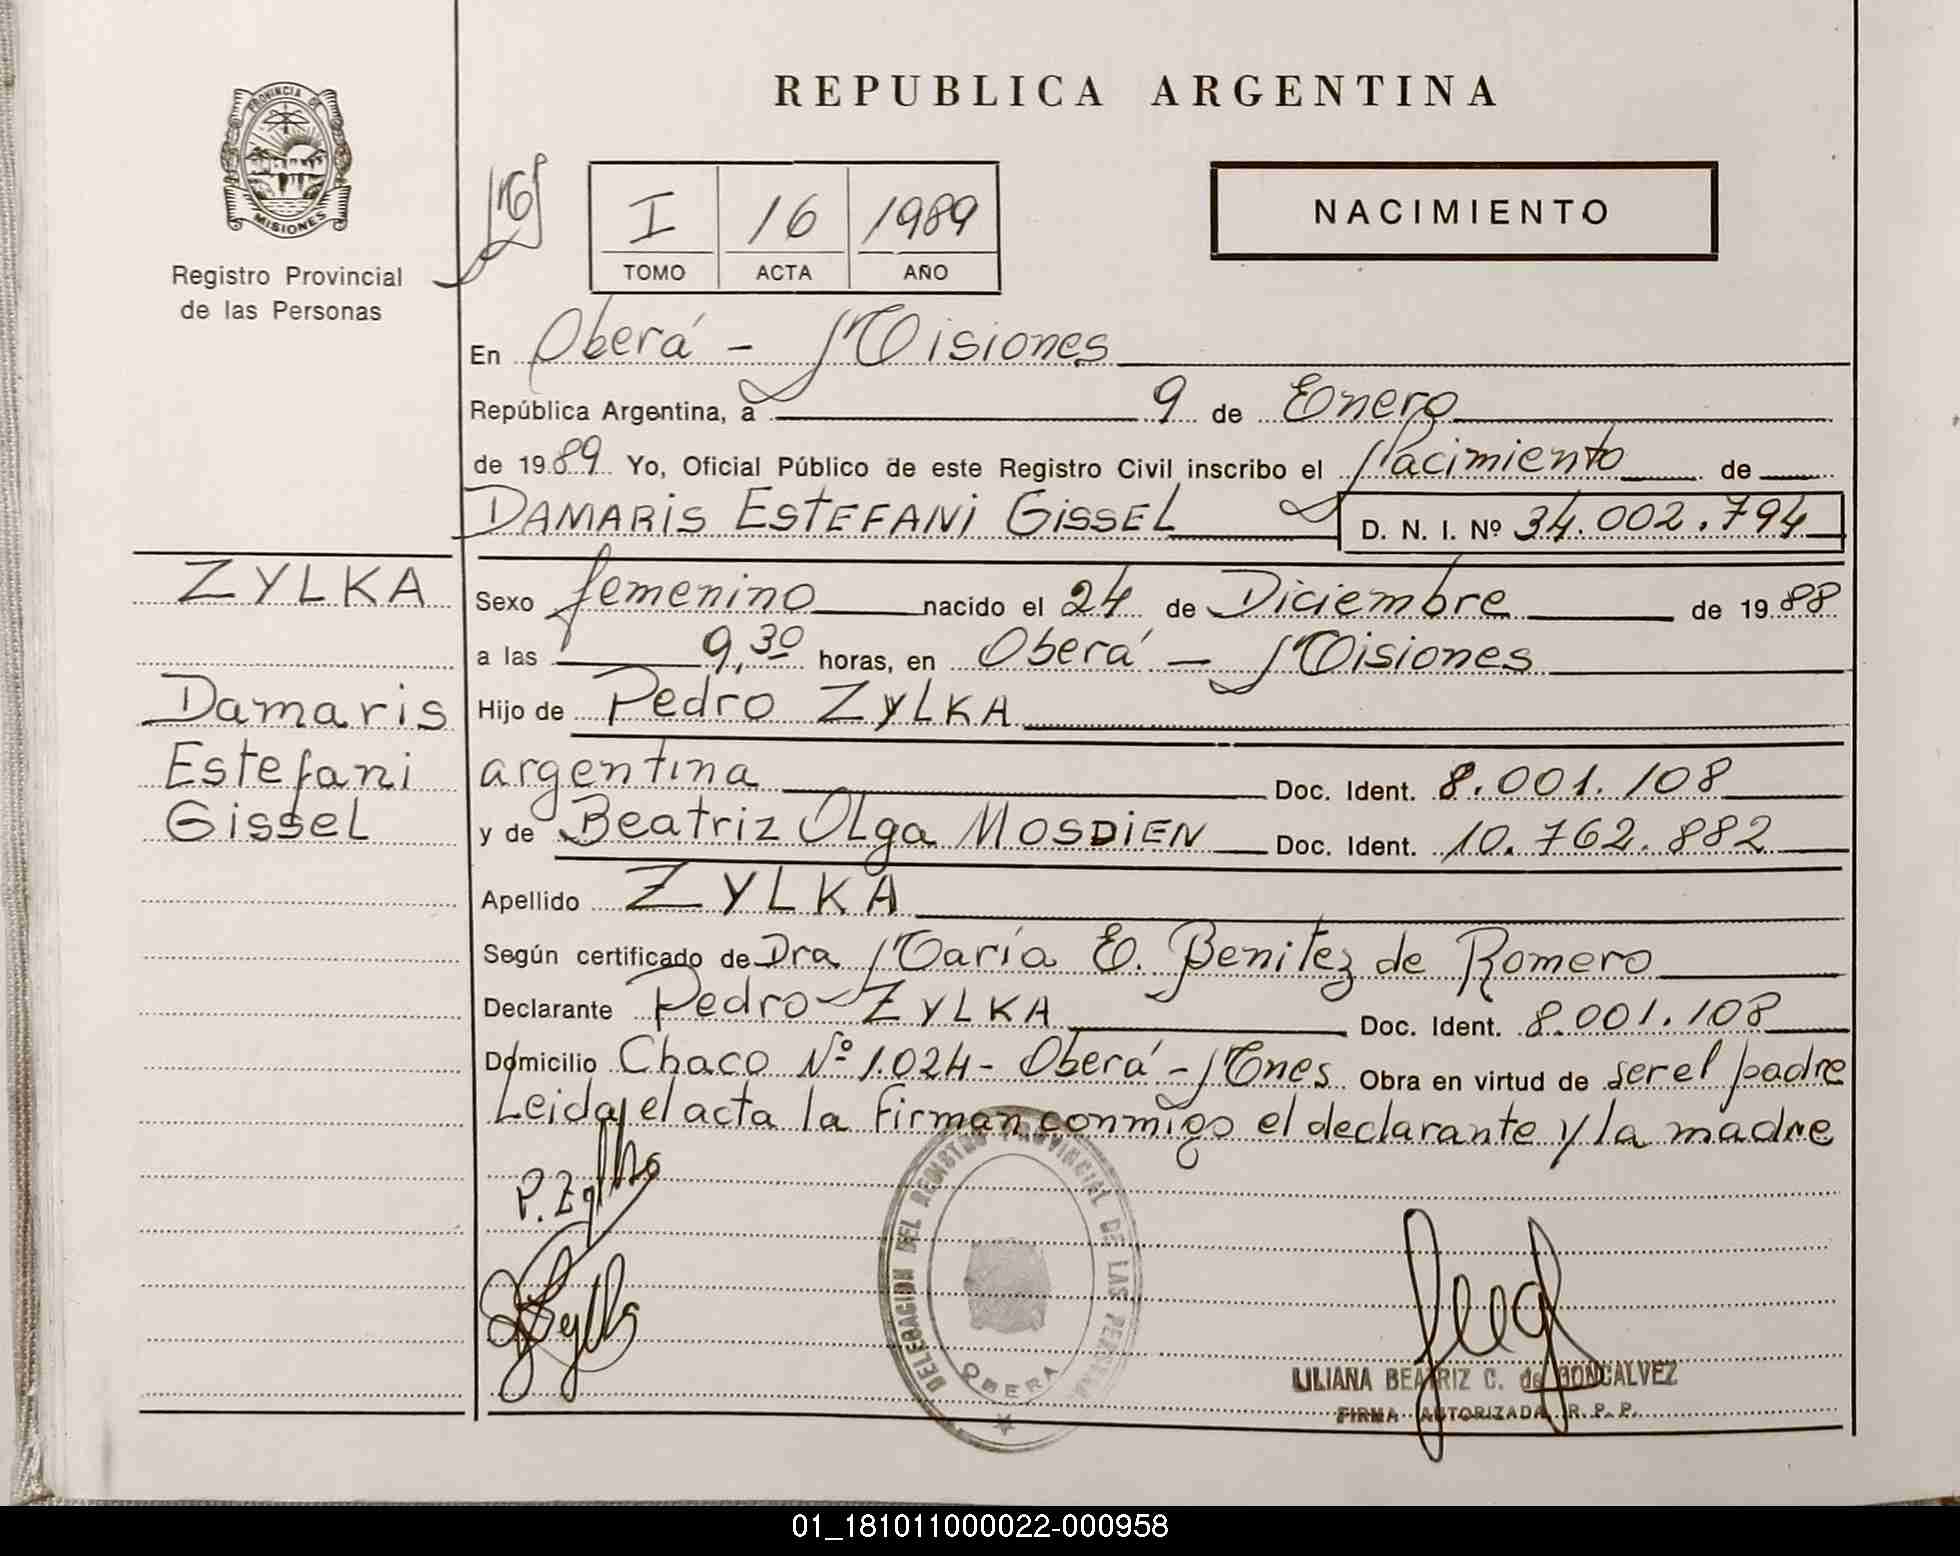 REPUBLICA ARGENTINA
PROVINCIA DE
MISIONES
Registro Provincial
de las Personas
I 16 1989
TOMO ACTA AÑO
NACIMIENTO
En Oberá - Misiones
República Argentina, a 9 de Enero
de 1989 Yo, Oficial Público de este Registro Civil inscribo el Nacimiento de
DAMARIS ESTEFANI GISSEL D. N. I. Nº 34.002.794
ZYLKA
Damaris
Estefani
Gissel
Sexo femenino nacido el 24 de Diciembre de 1988
a las 9,30 horas, en Oberá - Misiones
Hijo de Pedro ZYLKA
argentina Doc. Ident. 8.001.108
y de Beatriz Olga MOSDIEN Doc. Ident. 10.762.882
Apellido ZYLKA
Según certificado de Dra María E. Benitez de Romero
Declarante Pedro ZYLKA Doc. Ident. 8.001.108
Domicilio Chaco Nº 1.024 - Oberá - Mnes Obra en virtud de ser el padre
Leida el acta la firman conmigo el declarante y la madre
P. Zylka
DELEGACION DEL REGISTRO PROVINCIAL DE LAS PERSONAS
OBERA
LILIANA BEATRIZ C. de GONCALVEZ
FIRMA AUTORIZADA R. P. P.
01_181011000022-000958